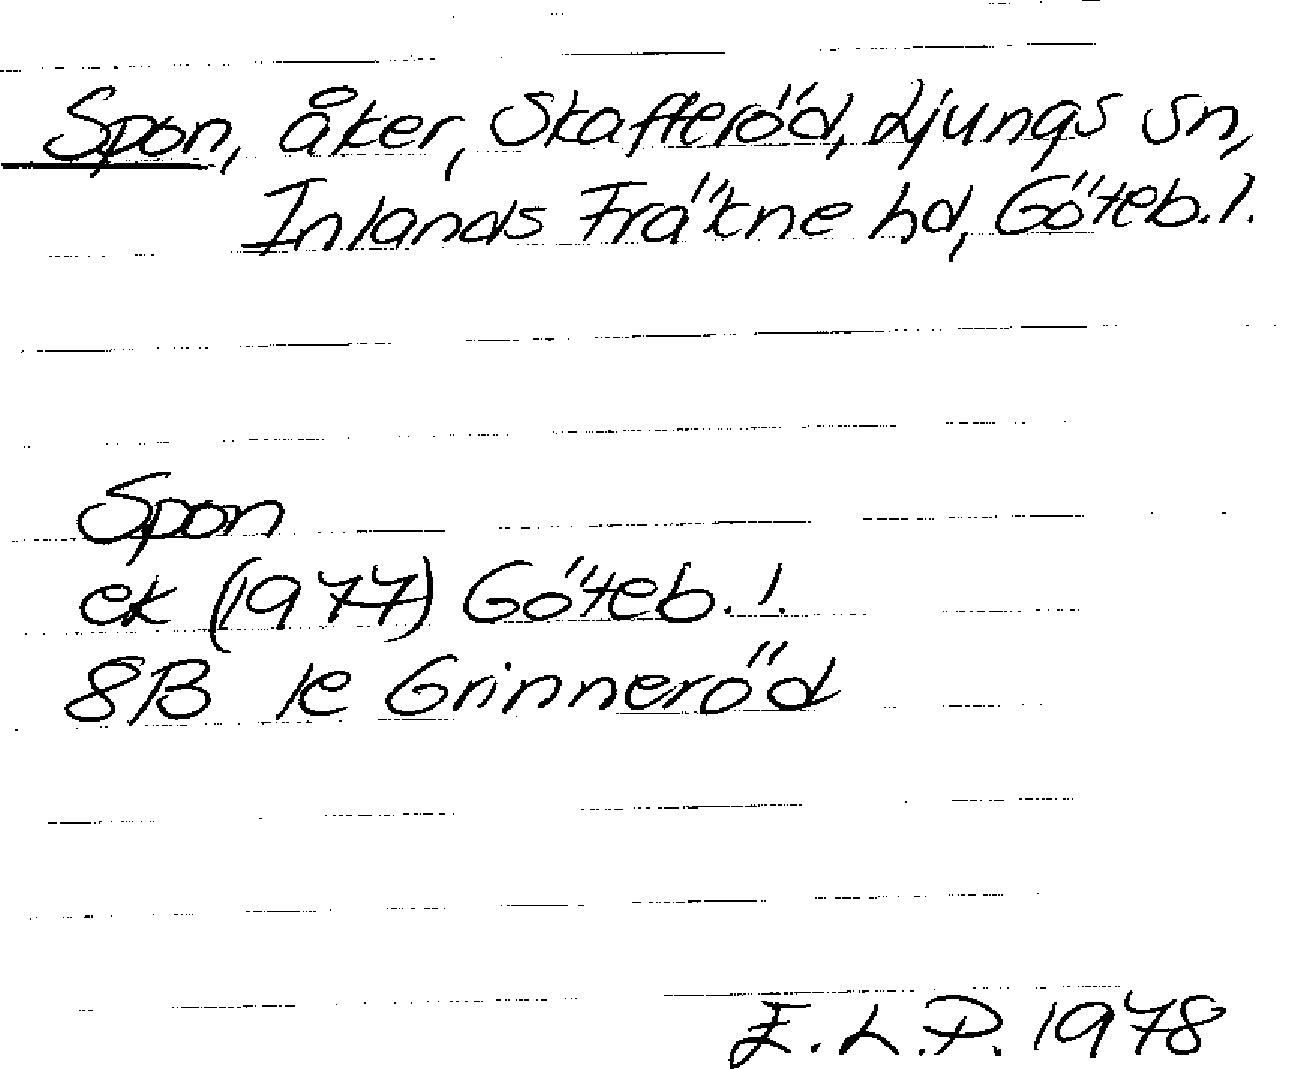 Spon, åker, Skafteröd, Ljungs sn,
Inlands Fräkne hd, Göteb.l.
Spon
ek (1977) Göteb.l.
8B 1e Grinneröd
E.L.P. 1978